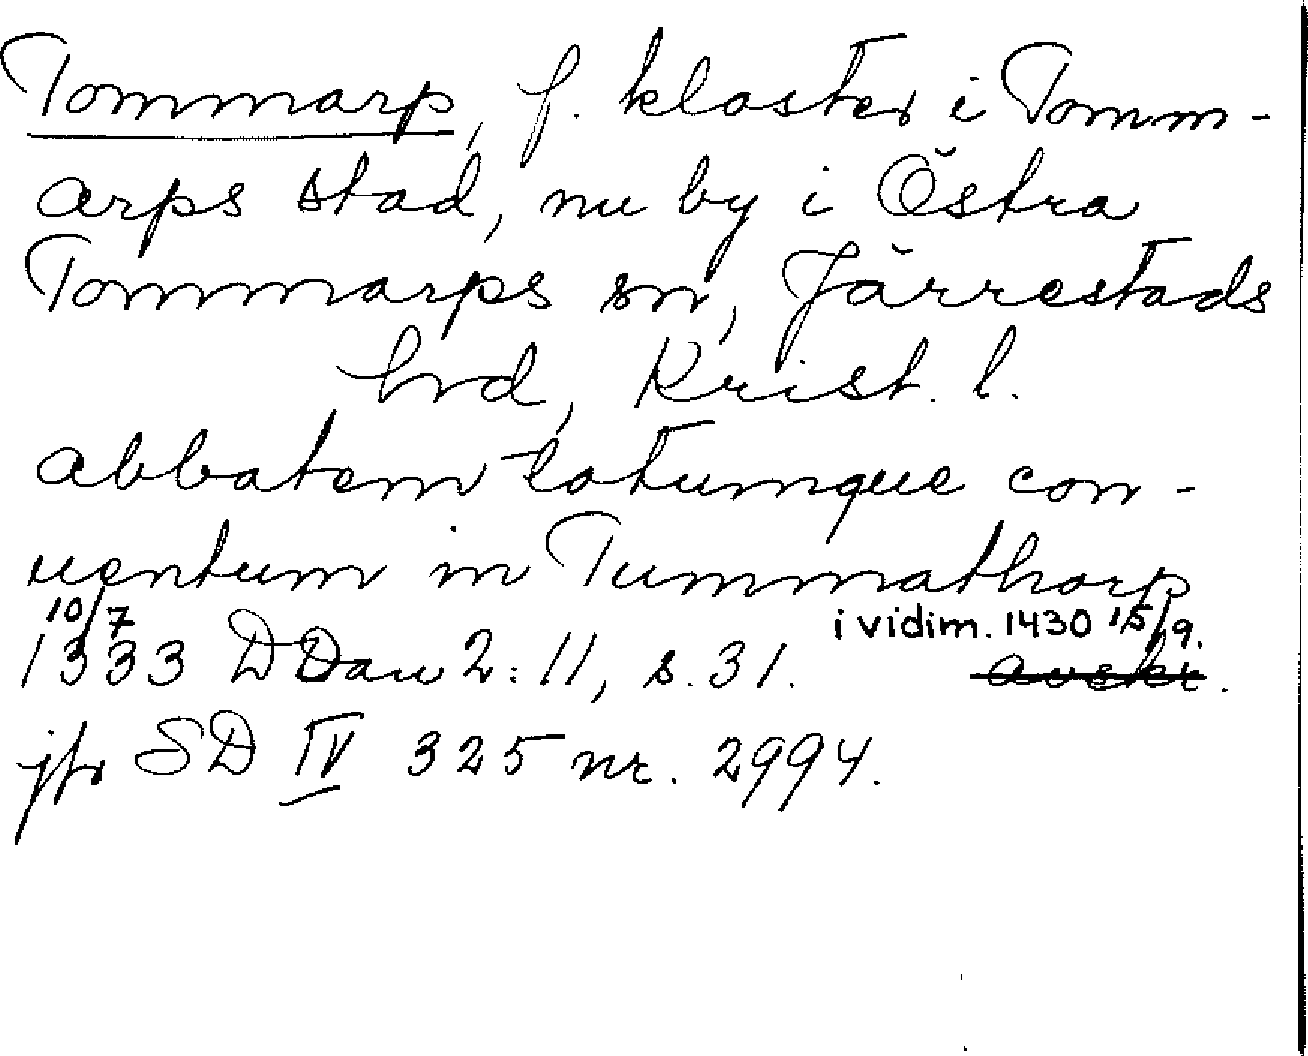 Tommarp, f. kloster i Tomm-
arps stad, nu by i Östra
Tommarps sn, Järrestads
hrd, Krist. l.
abbatem totumque con-
uentum in Tummathorp
10/7 i vidim. 1430 15/9.
1333 DDan 2:11, s. 31. avskr.
jfr SD IV 325 nr. 2994.